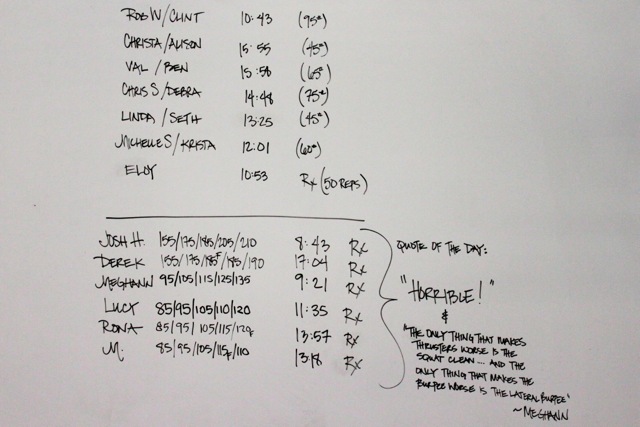 ROB W/CLINT 10:43 (95#)
CHRISTA/ALISON 15:55 (45#)
VAL/BEN 15:58 (65#)
CHRIS S/DEBRA 14:48 (75#)
LINDA/SETH 13:25 (45#)
MICHELLE S/KRISTA 12:01 (60#)
ELOY 10:53 Rx (50 REPS)
JOSH H. 155/175/185/205/210 8:43 Rx
DEREK 155/175/185F/185/190 17:04 Rx
MEGHANN 95/105/115/125/135 9:21 Rx
LUCY 85/95/105/110/120 11:35 Rx
RONA 85/95/105/115/120F 13:57 Rx
M. 85/95/105/115F/110 13:18 Rx
QUOTE OF THE DAY:
"HORRIBLE!"
&
"THE ONLY THING THAT MAKES
THRUSTERS WORSE IS THE
SQUAT CLEAN... AND THE
ONLY THING THAT MAKES THE
BURPEE WORSE IS THE LATERAL BURPEE"
~MEGHANN